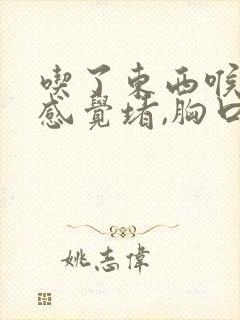 喫了東西喉
感覺堵,胸口
姚志偉